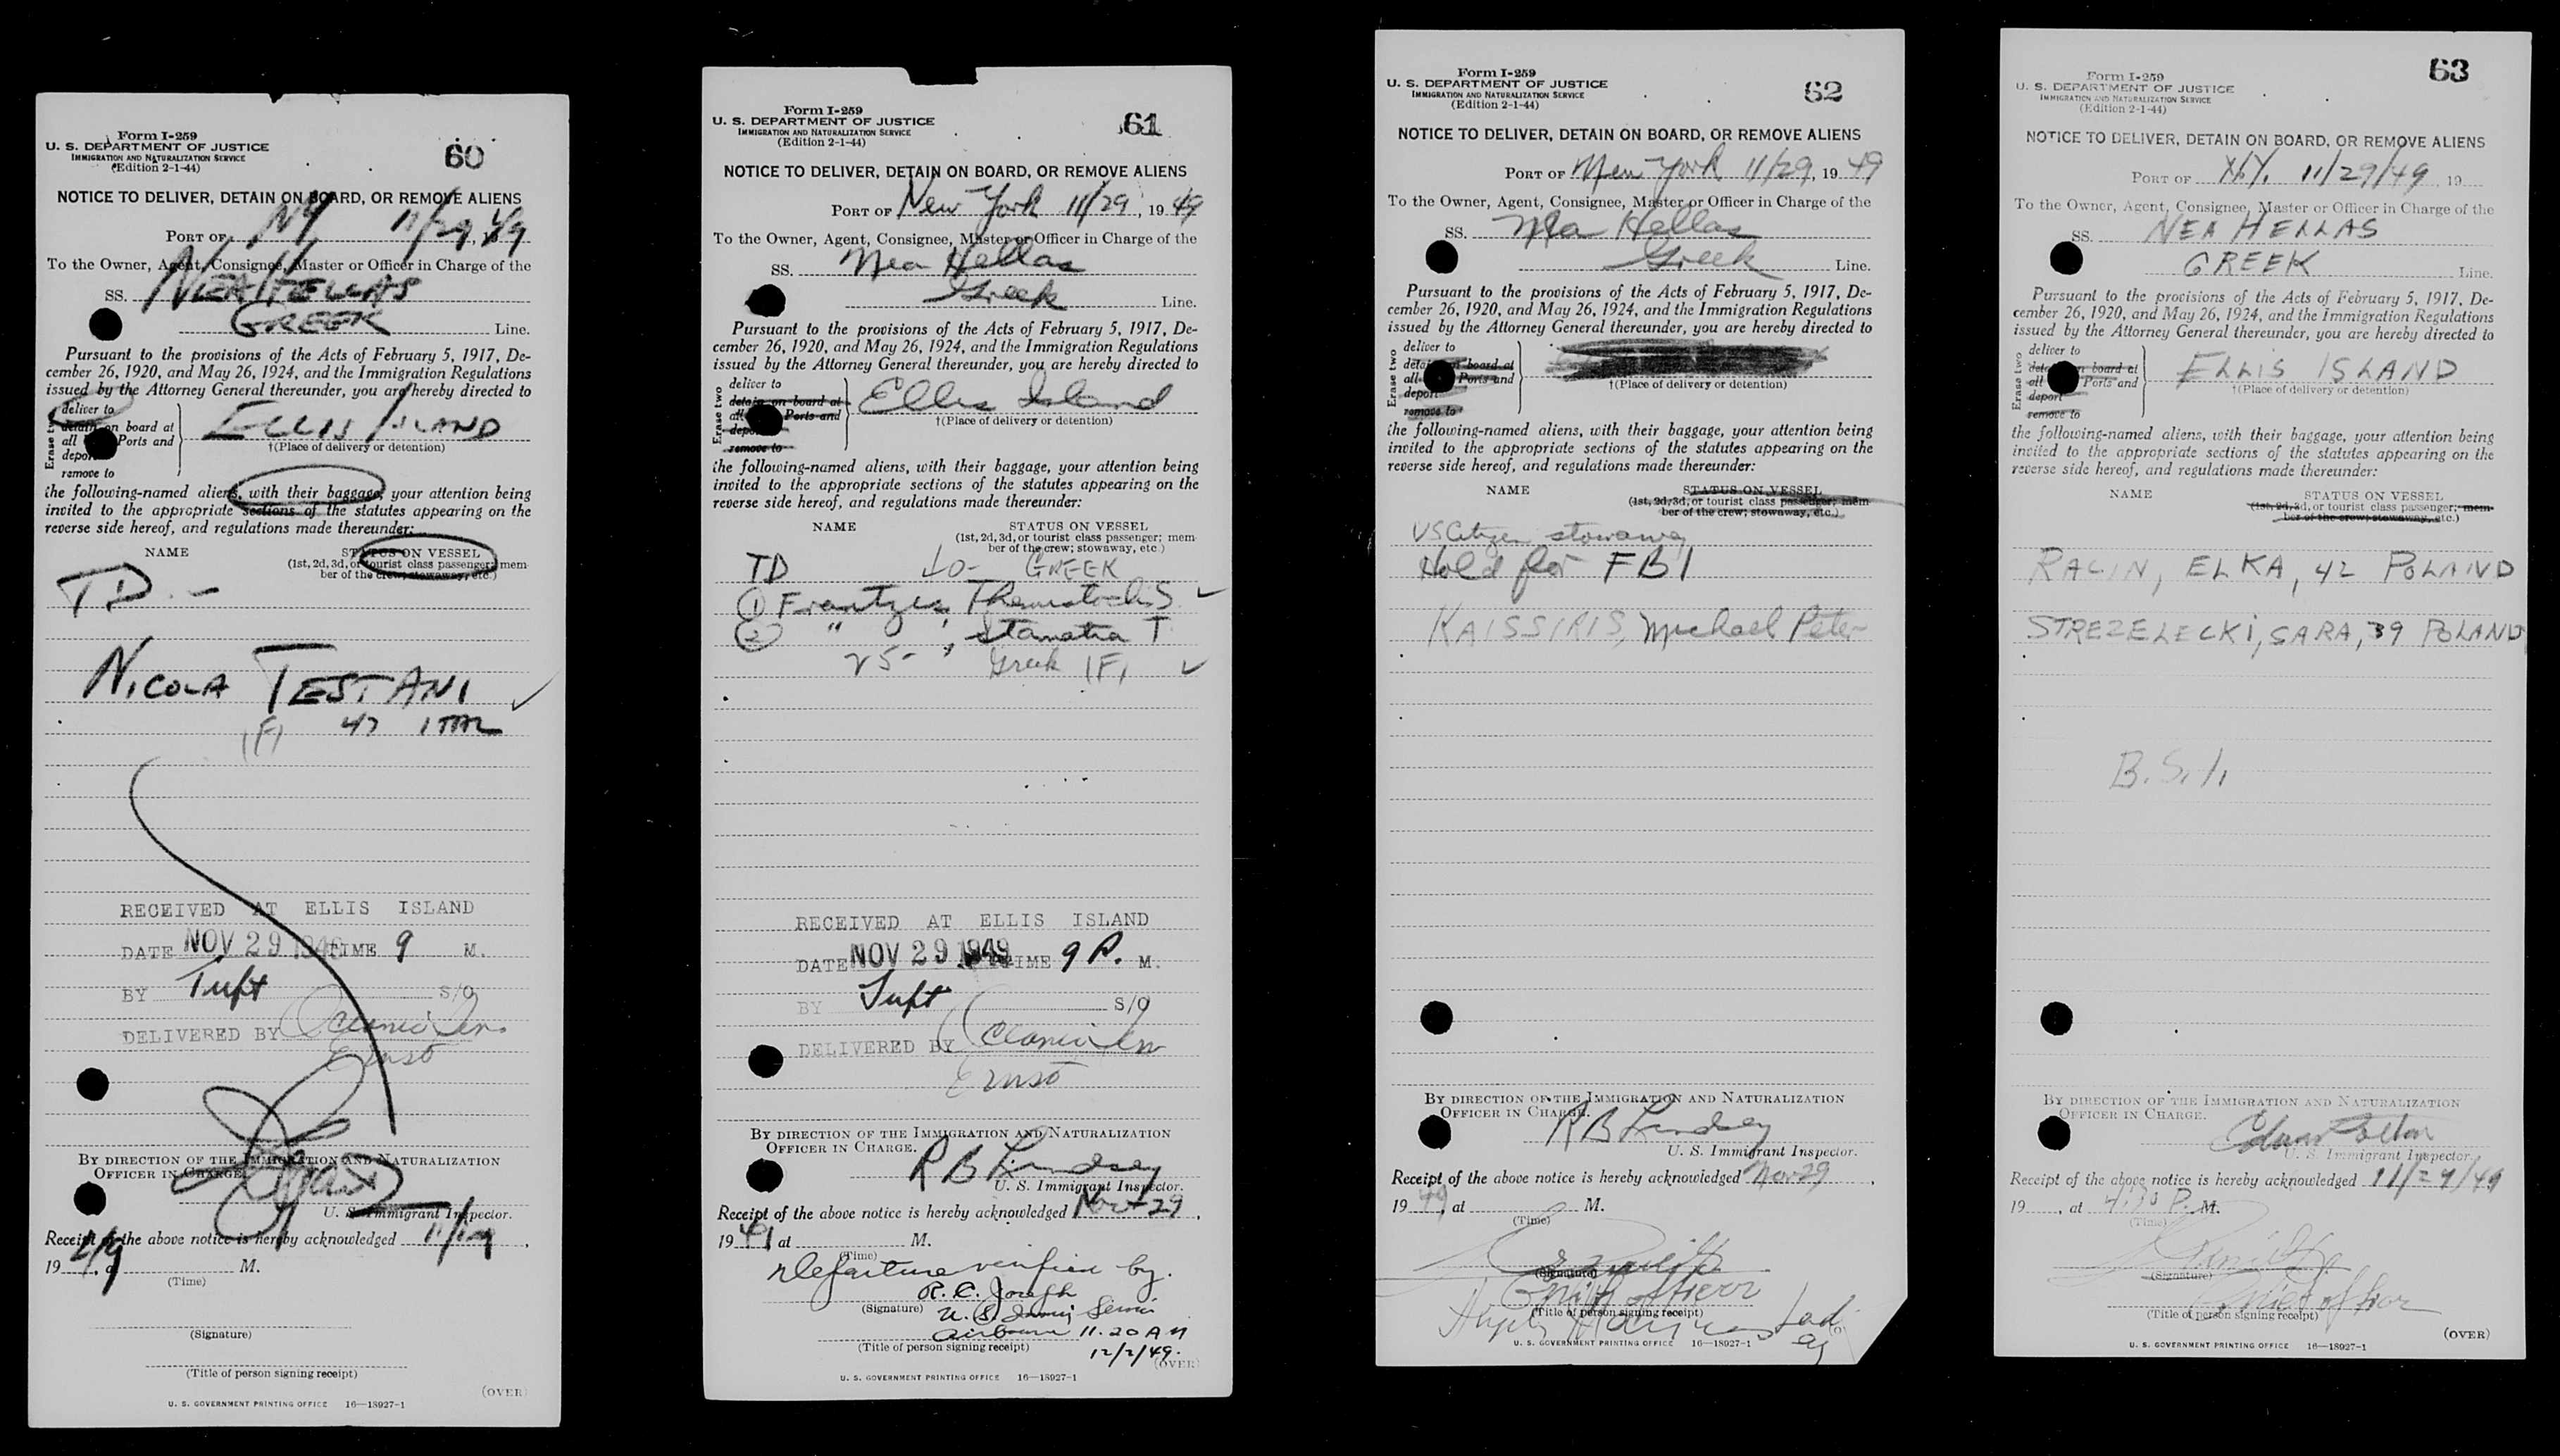 60
Form I-259
U. S. DEPARTMENT OF JUSTICE
IMMIGRATION AND NATURALIZATION SERVICE
(Edition 2-1-44)
NOTICE TO DELIVER, DETAIN ON BOARD, OR REMOVE ALIENS
PORT OF NY 11/29, 1949
To the Owner, Agent, Consignee, Master or Officer in Charge of the
SS. NEA HELLAS
GREEK Line.
Pursuant to the provisions of the Acts of February 5, 1917, De-
cember 26, 1920, and May 26, 1924, and the Immigration Regulations
issued by the Attorney General thereunder, you are hereby directed to
Erase two
deliver to
detain on board at
all Ports and
deport
remove to
ELLIS ISLAND
†(Place of delivery or detention)
the following-named aliens, with their baggage, your attention being
invited to the appropriate sections of the statutes appearing on the
reverse side hereof, and regulations made thereunder:
NAME STATUS ON VESSEL
(1st, 2d, 3d, or tourist class passenger; mem
ber of the crew; stowaway, etc.)
TD -
NICOLA TESTANI ✓
(F) 47 ITAL
RECEIVED AT ELLIS ISLAND
DATE NOV 29 1949 TIME 9 M.
BY Tuft S/O
DELIVERED BY
Ernst
BY DIRECTION OF THE IMMIGRATION AND NATURALIZATION
OFFICER IN CHARGE.
U. S. Immigrant Inspector.
Receipt of the above notice is hereby acknowledged 11/29,
1949, at M.
(Time)
(Signature)
(Title of person signing receipt)
(OVER)
U. S. GOVERNMENT PRINTING OFFICE 16—18927-1
61
Form I-259
U. S. DEPARTMENT OF JUSTICE
IMMIGRATION AND NATURALIZATION SERVICE
(Edition 2-1-44)
NOTICE TO DELIVER, DETAIN ON BOARD, OR REMOVE ALIENS
PORT OF New York 11/29, 1949
To the Owner, Agent, Consignee, Master or Officer in Charge of the
SS. Nea Hellas
Greek Line.
Pursuant to the provisions of the Acts of February 5, 1917, De-
cember 26, 1920, and May 26, 1924, and the Immigration Regulations
issued by the Attorney General thereunder, you are hereby directed to
Erase two
deliver to
detain on board at
all Ports and
deport
remove to
Ellis Island
†(Place of delivery or detention)
the following-named aliens, with their baggage, your attention being
invited to the appropriate sections of the statutes appearing on the
reverse side hereof, and regulations made thereunder:
NAME STATUS ON VESSEL
(1st, 2d, 3d, or tourist class passenger; mem
ber of the crew; stowaway, etc.)
TD 40- GREEK
① Frantzis, Themistoclis ✓
② " , Stamatia T
25- Greek (F) ✓
RECEIVED AT ELLIS ISLAND
DATE NOV 29 1949 TIME 9 P. M.
BY Tuft S/O
DELIVERED BY
Ernst
BY DIRECTION OF THE IMMIGRATION AND NATURALIZATION
OFFICER IN CHARGE.
R B Lindsey
U. S. Immigrant Inspector.
Receipt of the above notice is hereby acknowledged Nov 29,
1949 at M.
(Time)
Departure verified by.
R. E. Joseph
(Signature) U. S. Immig Service
Airborne 11.20 AM
(Title of person signing receipt) 12/2/49.
(OVER)
U. S. GOVERNMENT PRINTING OFFICE 16—18927-1
62
Form I-259
U. S. DEPARTMENT OF JUSTICE
IMMIGRATION AND NATURALIZATION SERVICE
(Edition 2-1-44)
NOTICE TO DELIVER, DETAIN ON BOARD, OR REMOVE ALIENS
PORT OF New York 11/29, 1949
To the Owner, Agent, Consignee, Master or Officer in Charge of the
SS. Nea Hellas
Greek Line.
Pursuant to the provisions of the Acts of February 5, 1917, De-
cember 26, 1920, and May 26, 1924, and the Immigration Regulations
issued by the Attorney General thereunder, you are hereby directed to
Erase two
deliver to
detain on board at
all Ports and
deport
remove to
†(Place of delivery or detention)
the following-named aliens, with their baggage, your attention being
invited to the appropriate sections of the statutes appearing on the
reverse side hereof, and regulations made thereunder:
NAME STATUS ON VESSEL
(1st, 2d, 3d, or tourist class passenger; mem
ber of the crew; stowaway, etc.)
US Citizen stowaway
Hold for FBI
KAISSIRIS, Michael Peter
BY DIRECTION OF THE IMMIGRATION AND NATURALIZATION
OFFICER IN CHARGE.
R B Lindsey
U. S. Immigrant Inspector.
Receipt of the above notice is hereby acknowledged Nov 29,
1949, at M.
(Time)
(Signature)
Chief officer
(Title of person signing receipt)
U. S. GOVERNMENT PRINTING OFFICE 16—18927-1
63
Form I-259
U. S. DEPARTMENT OF JUSTICE
IMMIGRATION AND NATURALIZATION SERVICE
(Edition 2-1-44)
NOTICE TO DELIVER, DETAIN ON BOARD, OR REMOVE ALIENS
PORT OF N.Y. 11/29/49, 19
To the Owner, Agent, Consignee, Master or Officer in Charge of the
SS. NEA HELLAS
GREEK Line.
Pursuant to the provisions of the Acts of February 5, 1917, De-
cember 26, 1920, and May 26, 1924, and the Immigration Regulations
issued by the Attorney General thereunder, you are hereby directed to
Erase two
deliver to
detain on board at
all Ports and
deport
remove to
ELLIS ISLAND
†(Place of delivery or detention)
the following-named aliens, with their baggage, your attention being
invited to the appropriate sections of the statutes appearing on the
reverse side hereof, and regulations made thereunder:
NAME STATUS ON VESSEL
(1st, 2d, 3d, or tourist class passenger; mem-
ber of the crew; stowaway, etc.)
RACIN, ELKA, 42 POLAND
STREZELECKI, SARA, 39 POLAND
B.S.I.
BY DIRECTION OF THE IMMIGRATION AND NATURALIZATION
OFFICER IN CHARGE.
U. S. Immigrant Inspector.
Receipt of the above notice is hereby acknowledged 11/29/49
19, at 4:30 P. M.
(Time)
(Signature)
Chief officer
(Title of person signing receipt)
(OVER)
U. S. GOVERNMENT PRINTING OFFICE 16—18927-1